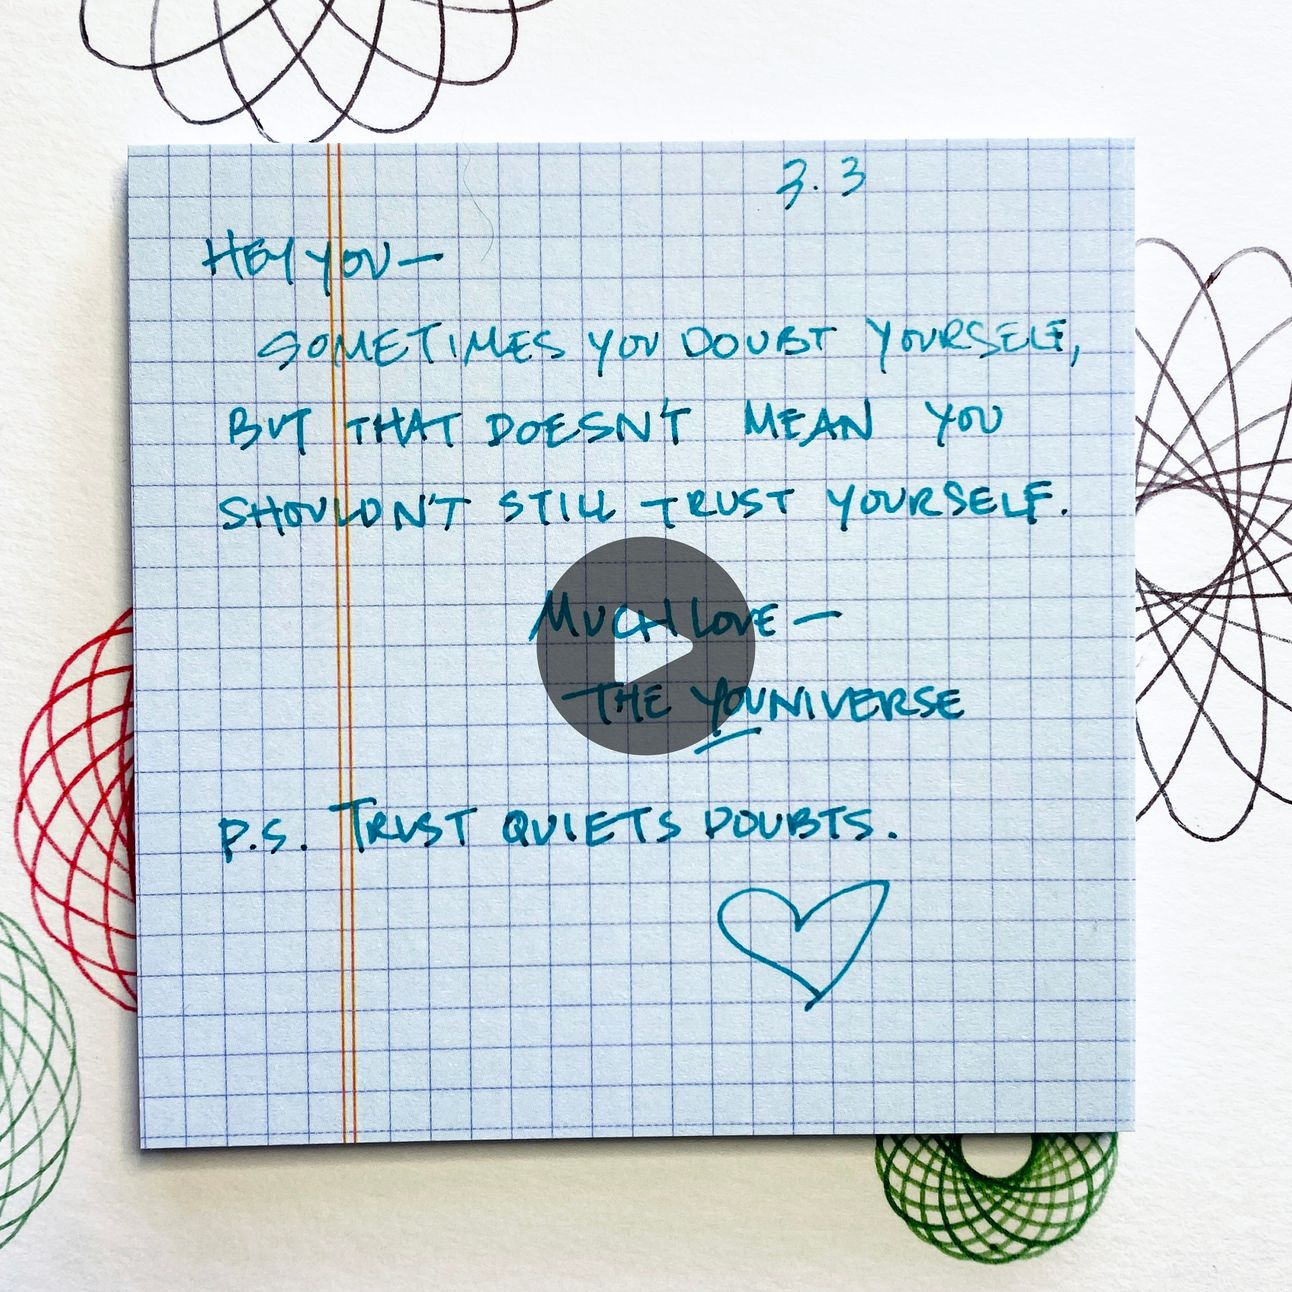 3.3
HEY YOU—
SOMETIMES YOU DOUBT YOURSELF,
BUT THAT DOESN'T MEAN YOU
SHOULDN'T STILL TRUST YOURSELF.
MUCH LOVE—
THE YOUNIVERSE
P.S. TRUST QUIETS DOUBTS.